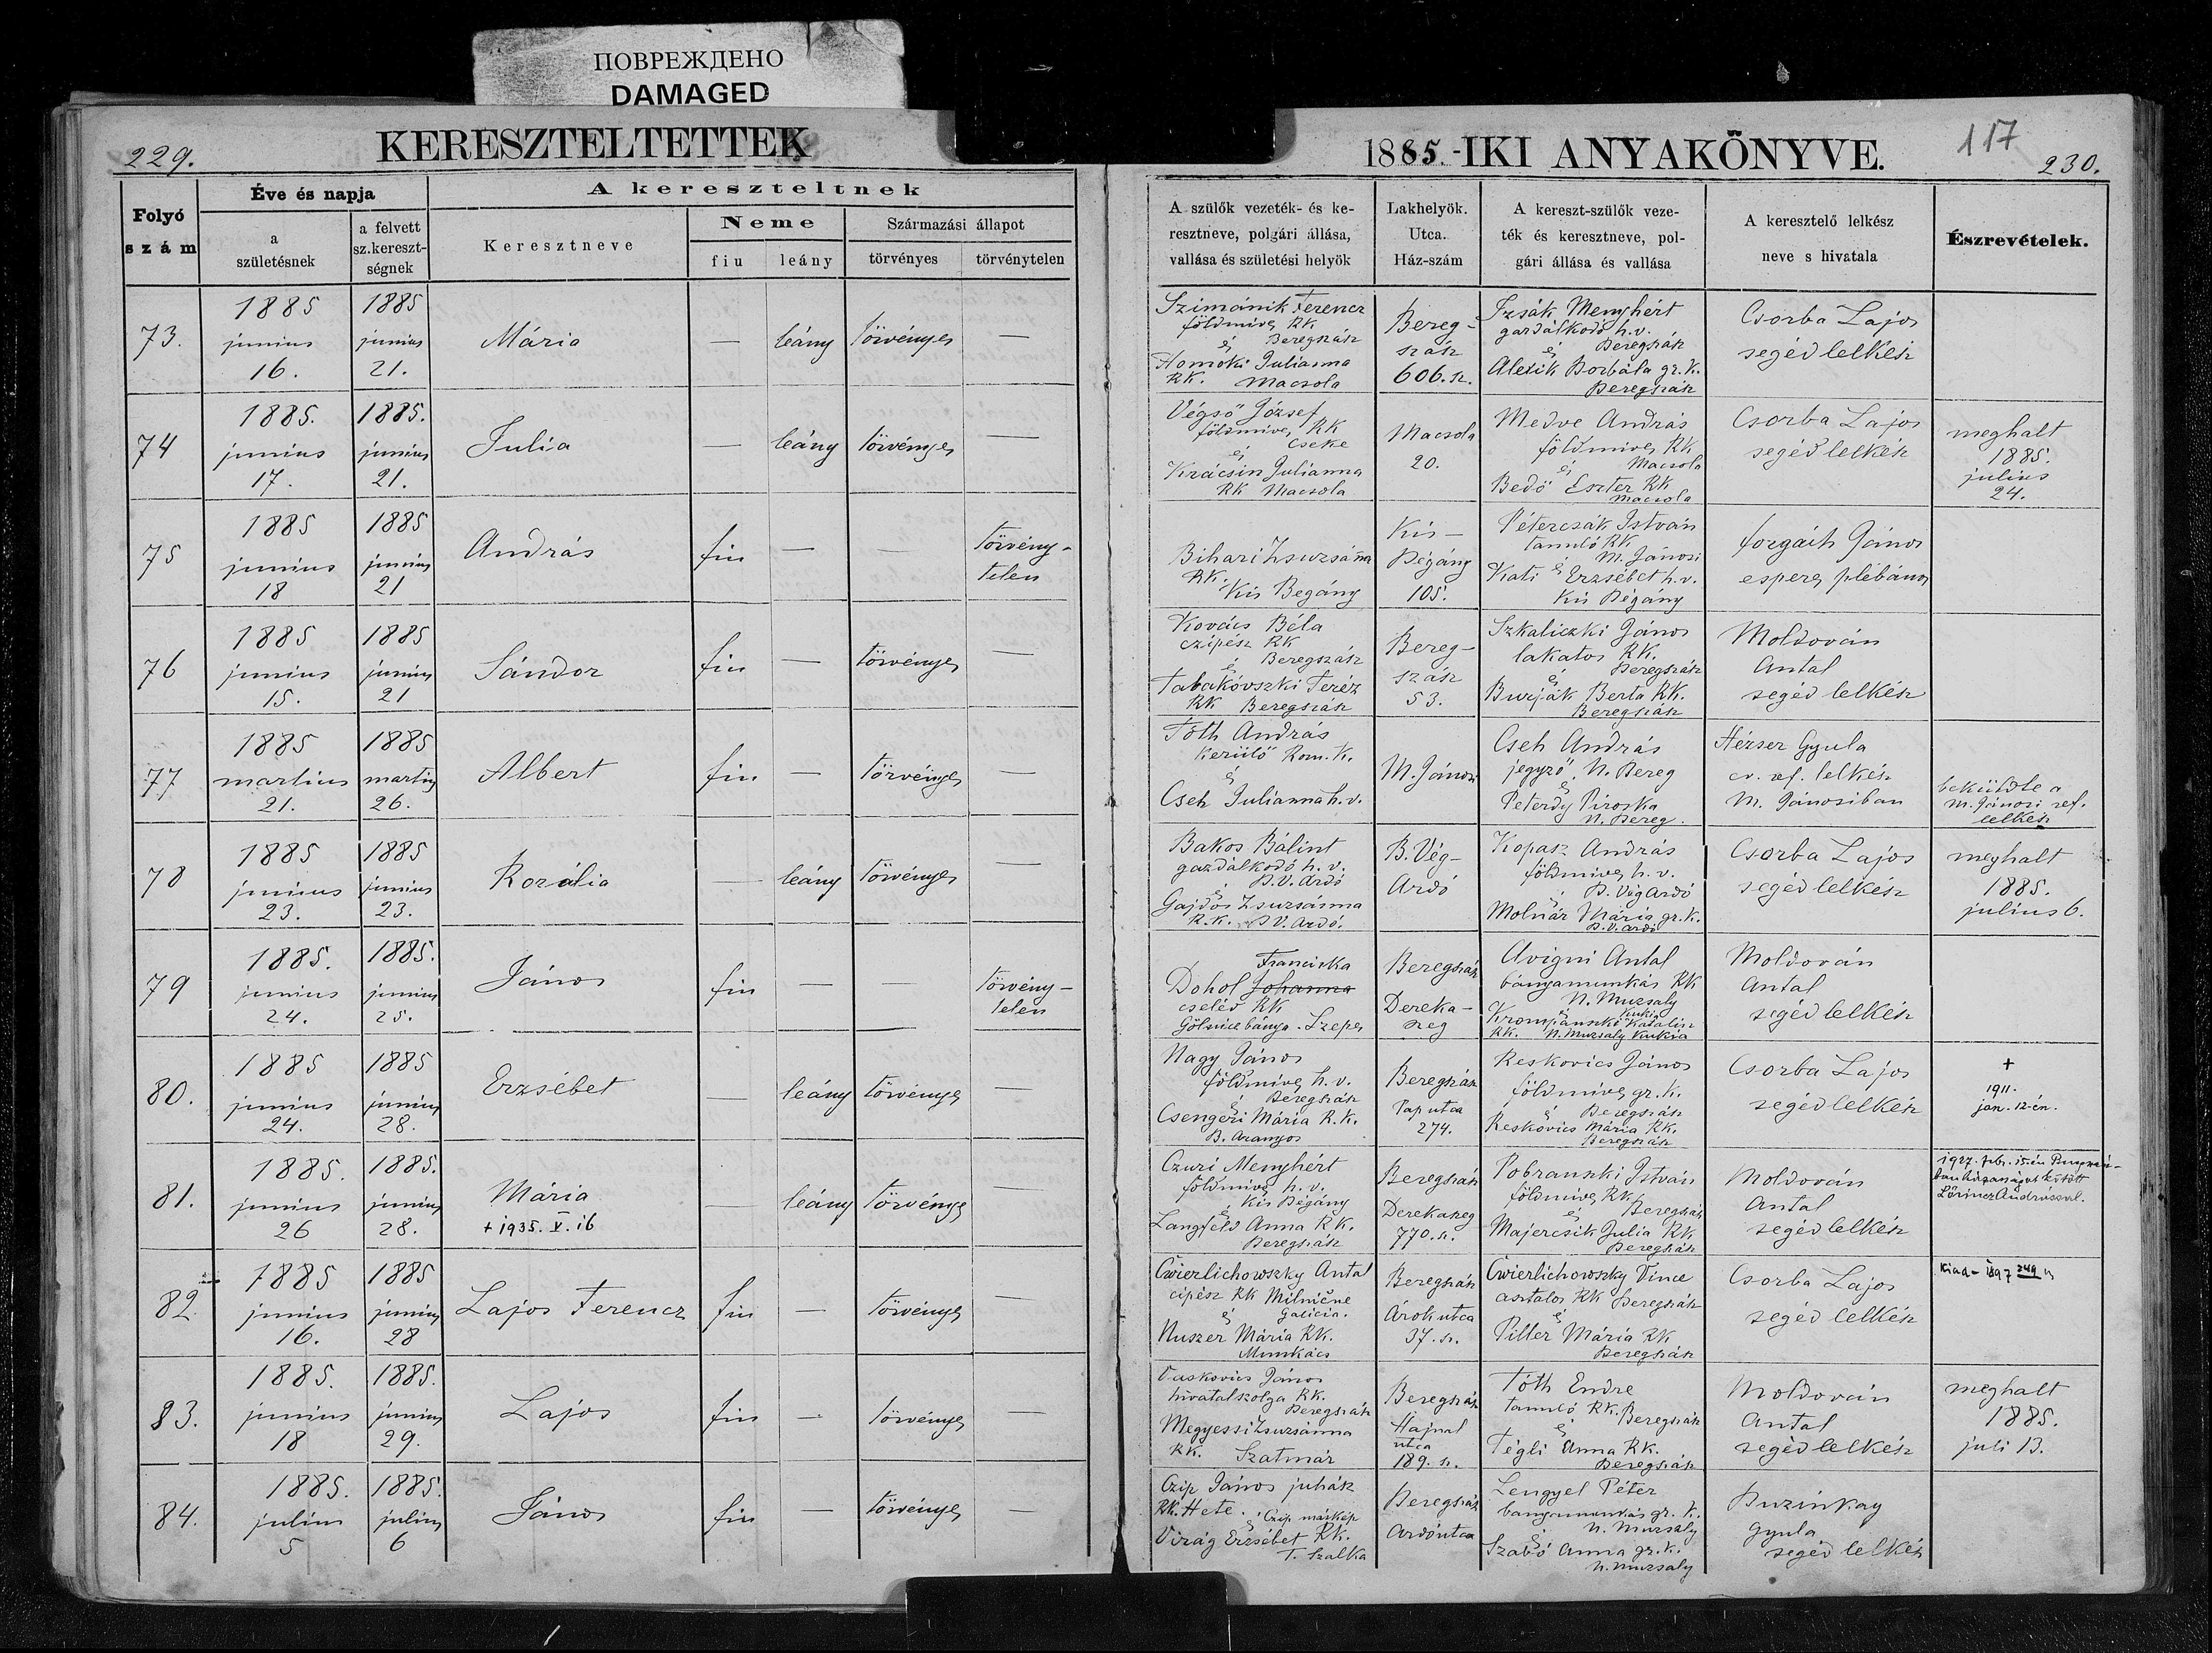 ПОВРЕЖДЕНО
DAMAGED
229.
KERESZTELTETTEK
1885.-IKI ANYAKÖNYVE.
117
230.
Folyó
szám
Éve és napja
a
születésnek
a felvett
sz.kereszt-
ségnek
A kereszteltnek
Keresztneve
Neme
fiu
leány
Származási állapot
törvényes
törvénytelen
A szülők vezeték- és ke-
resztneve, polgári állása,
vallása és születési helyök
Lakhelyök.
Utca.
Ház-szám
A kereszt-szülők veze-
ték és keresztneve, pol-
gári állása és vallása
A keresztelő lelkész
neve s hivatala
Észrevételek.
73.
1885
junius
16.
1885
junius
21.
Mária
—
leány
törvényes
—
Szimánik Ferencz
földmives RK
Beregszász
és
Homoki Julianna
RK. Macsola
Bereg-
szász
606. sz.
Izsák Menyhért
gazdálkodó h.v.
és Beregszász
Alexik Borbála gr. k.
Beregszász
Csorba Lajos
segéd lelkész
74
1885.
junius
17.
1885.
junius
21.
Julia
—
leány
törvényes
—
Végső József
földmives RK
Cseke
és
Krácsin Julianna
RK Macsola
Macsola
20.
Medve András
földmives RK
és Macsola
Bedő Eszter RK
Macsola
Csorba Lajos
segéd lelkész
meghalt
1885.
julius
24.
75
1885
junius
18
1885
junius
21
András
fiu
—
—
törvény-
telen
Bihari Zsuzsánna
RK.
Kis Begány
Kis-
Bégány
105.
Pétercsák István
tanuló RK
M. Jánosi
Kati és Erzsébet h.v.
Kis Bégány
forgách János
esperes plébános
76
1885
junius
15.
1885
junius
21
Sándor
fiu
—
törvényes
—
Kovács Béla
czipész RK
és Beregszász
Tabakóvszki Teréz
RK Beregszász
Bereg-
szász
53.
Szkaliczki János
lakatos RK.
és Beregszász
Burják Berta RK.
Beregszász
Moldován
Antal
segéd lelkész
77
1885
martius
21.
1885
martius
26.
Albert
fiu
—
törvényes
—
Tóth András
kerülő Rom. K.
és
Cseh Julianna h.v.
M. Jánosi
Cseh András
jegyző, N. Bereg
és
Peterdy Piroska
N. Bereg.
Hézser Gyula
ev. ref. lelkész
M. Jánosiban
beküldte a
M. Jánosi ref.
lelkész
78
1885
junius
23.
1885
junius
23.
Rozália
—
leány
törvényes
—
Bakos Bálint
gazdálkodó h.v.
és B.V. Ardó
Gajdos Zsuzsánna
R.K. B V. Ardó.
B. Vég-
Ardó
Kopasz András
földmives h.v.
és B. Vég Ardó
Molnár Mária gr. k.
B.V. ardó
Csorba Lajos
segéd lelkész
meghalt
1885.
julius 6.
79
1885.
junius
24.
1885.
junius
25.
János
fiu
—
—
törvény-
telen
Franciska
Dohol Johanna
cseléd RK
Gölnicbánya. Szepes
Beregszász
Dereka-
szeg
Avigni Antal
bányamunkás RK
N. Muzsaly
és Kuklia
Krompánszki Katalin
RK. N. Muzsaly Kuklia
Moldován
Antal
segéd lelkész
80.
1885
junius
24.
1885
junius
28.
Erzsébet
—
leány
törvényes
—
Nagy János
földmives h.v.
és Beregszász
Csengeri Mária R.K.
B. Aranyos
Beregszász
Pap utca
274.
Reskovics János
földmives gr. k.
és Beregszász
Reskovics Mária RK.
Beregszász
Csorba Lajos
segéd lelkész
+
1911.
jan. 12-én.
81.
1885.
junius
26
1885.
junius
28.
Mária
+ 1935. V. 16
—
leány
törvényes
—
Czuri Menyhért
földmives h.v.
és Kis Bégány
Langfeld Anna RK.
Beregszász
Beregszász
Derekaszeg
770. sz.
Pobranszki István
földmives RK
és Beregszász
Majercsik Julia RK
Beregszász
Moldován
Antal
segéd lelkész
1927. febr. 15.én
ban házasságot kötött
Lőrincz Andrással.
82.
1885
junius
16.
1885
junius
28
Lajos Ferencz
fiu
—
törvényes
—
Cwierlichowszky Antal
cipész RK Milnične
és Galicia.
Nuszer Mária RK.
Munkács
Beregszász
Árok utca
37. sz.
Cwierlichowszky Vince
asztalos RK Beregszász
és
Piller Mária RK
Beregszász
Csorba Lajos
segéd lelkész
Kiad- 1897 249
83.
1885.
junius
18
1885.
junius
29.
Lajos
fiu
—
törvényes
—
Vaskovics János
hivatalszolga RK.
Beregszász
Megyessi Zsuzsánna
RK. Szatmár
Beregszász
Hajnal
utca
189. sz.
Tóth Endre
tanuló RK. Beregszász
és
Tégli Anna RK.
Beregszász
Moldován
Antal
segéd lelkész
meghalt
1885.
juli 13.
84.
1885.
julius
5
1885.
julius
6
János
fiu
—
törvényes
—
Czip János juhász
RK. Hete. Czip máskép
és
Virág Erzsébet RK.
T. Szalka
Beregszász
Ardóutca
Lengyel Péter
bányamunkás gr. k.
és N. Muzsaly
Szabó Anna gr. k.
N. Muzsaly
Buzinkay
Gyula
segéd lelkész